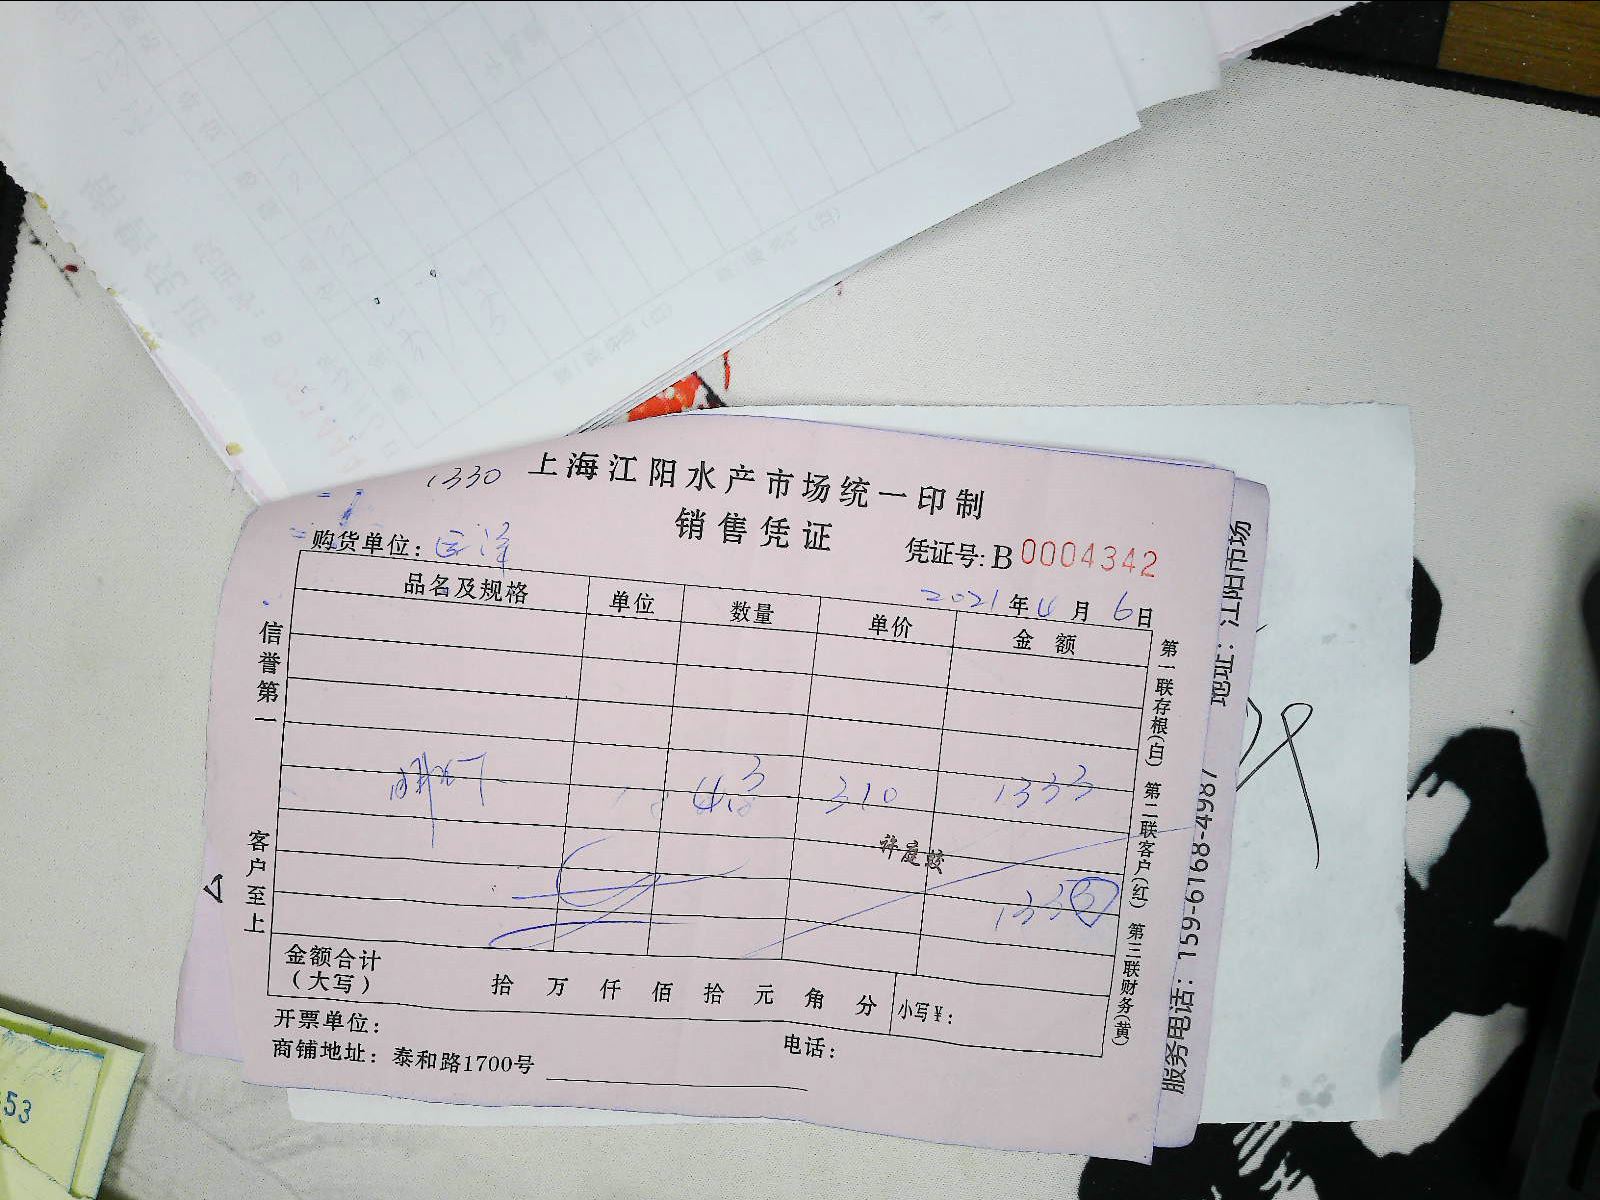 1330
上海江阳水产市场统一印制
销售凭证
购货单位：
凭证号: B 0004342
2021年4月6日
品名及规格 单位 数量 单价 金额
4.3 310 1333
许庭蛟
1333
金额合计
（大写）
拾 万 仟 佰 拾 元 角 分 小写¥:
开票单位：
电话：
商铺地址：泰和路1700号
信誉第一
客户至上
第一联存根(白) 第二联客户(红) 第三联财务(黄)
服务电话：159-6168-4987 地址：江阳市场
53